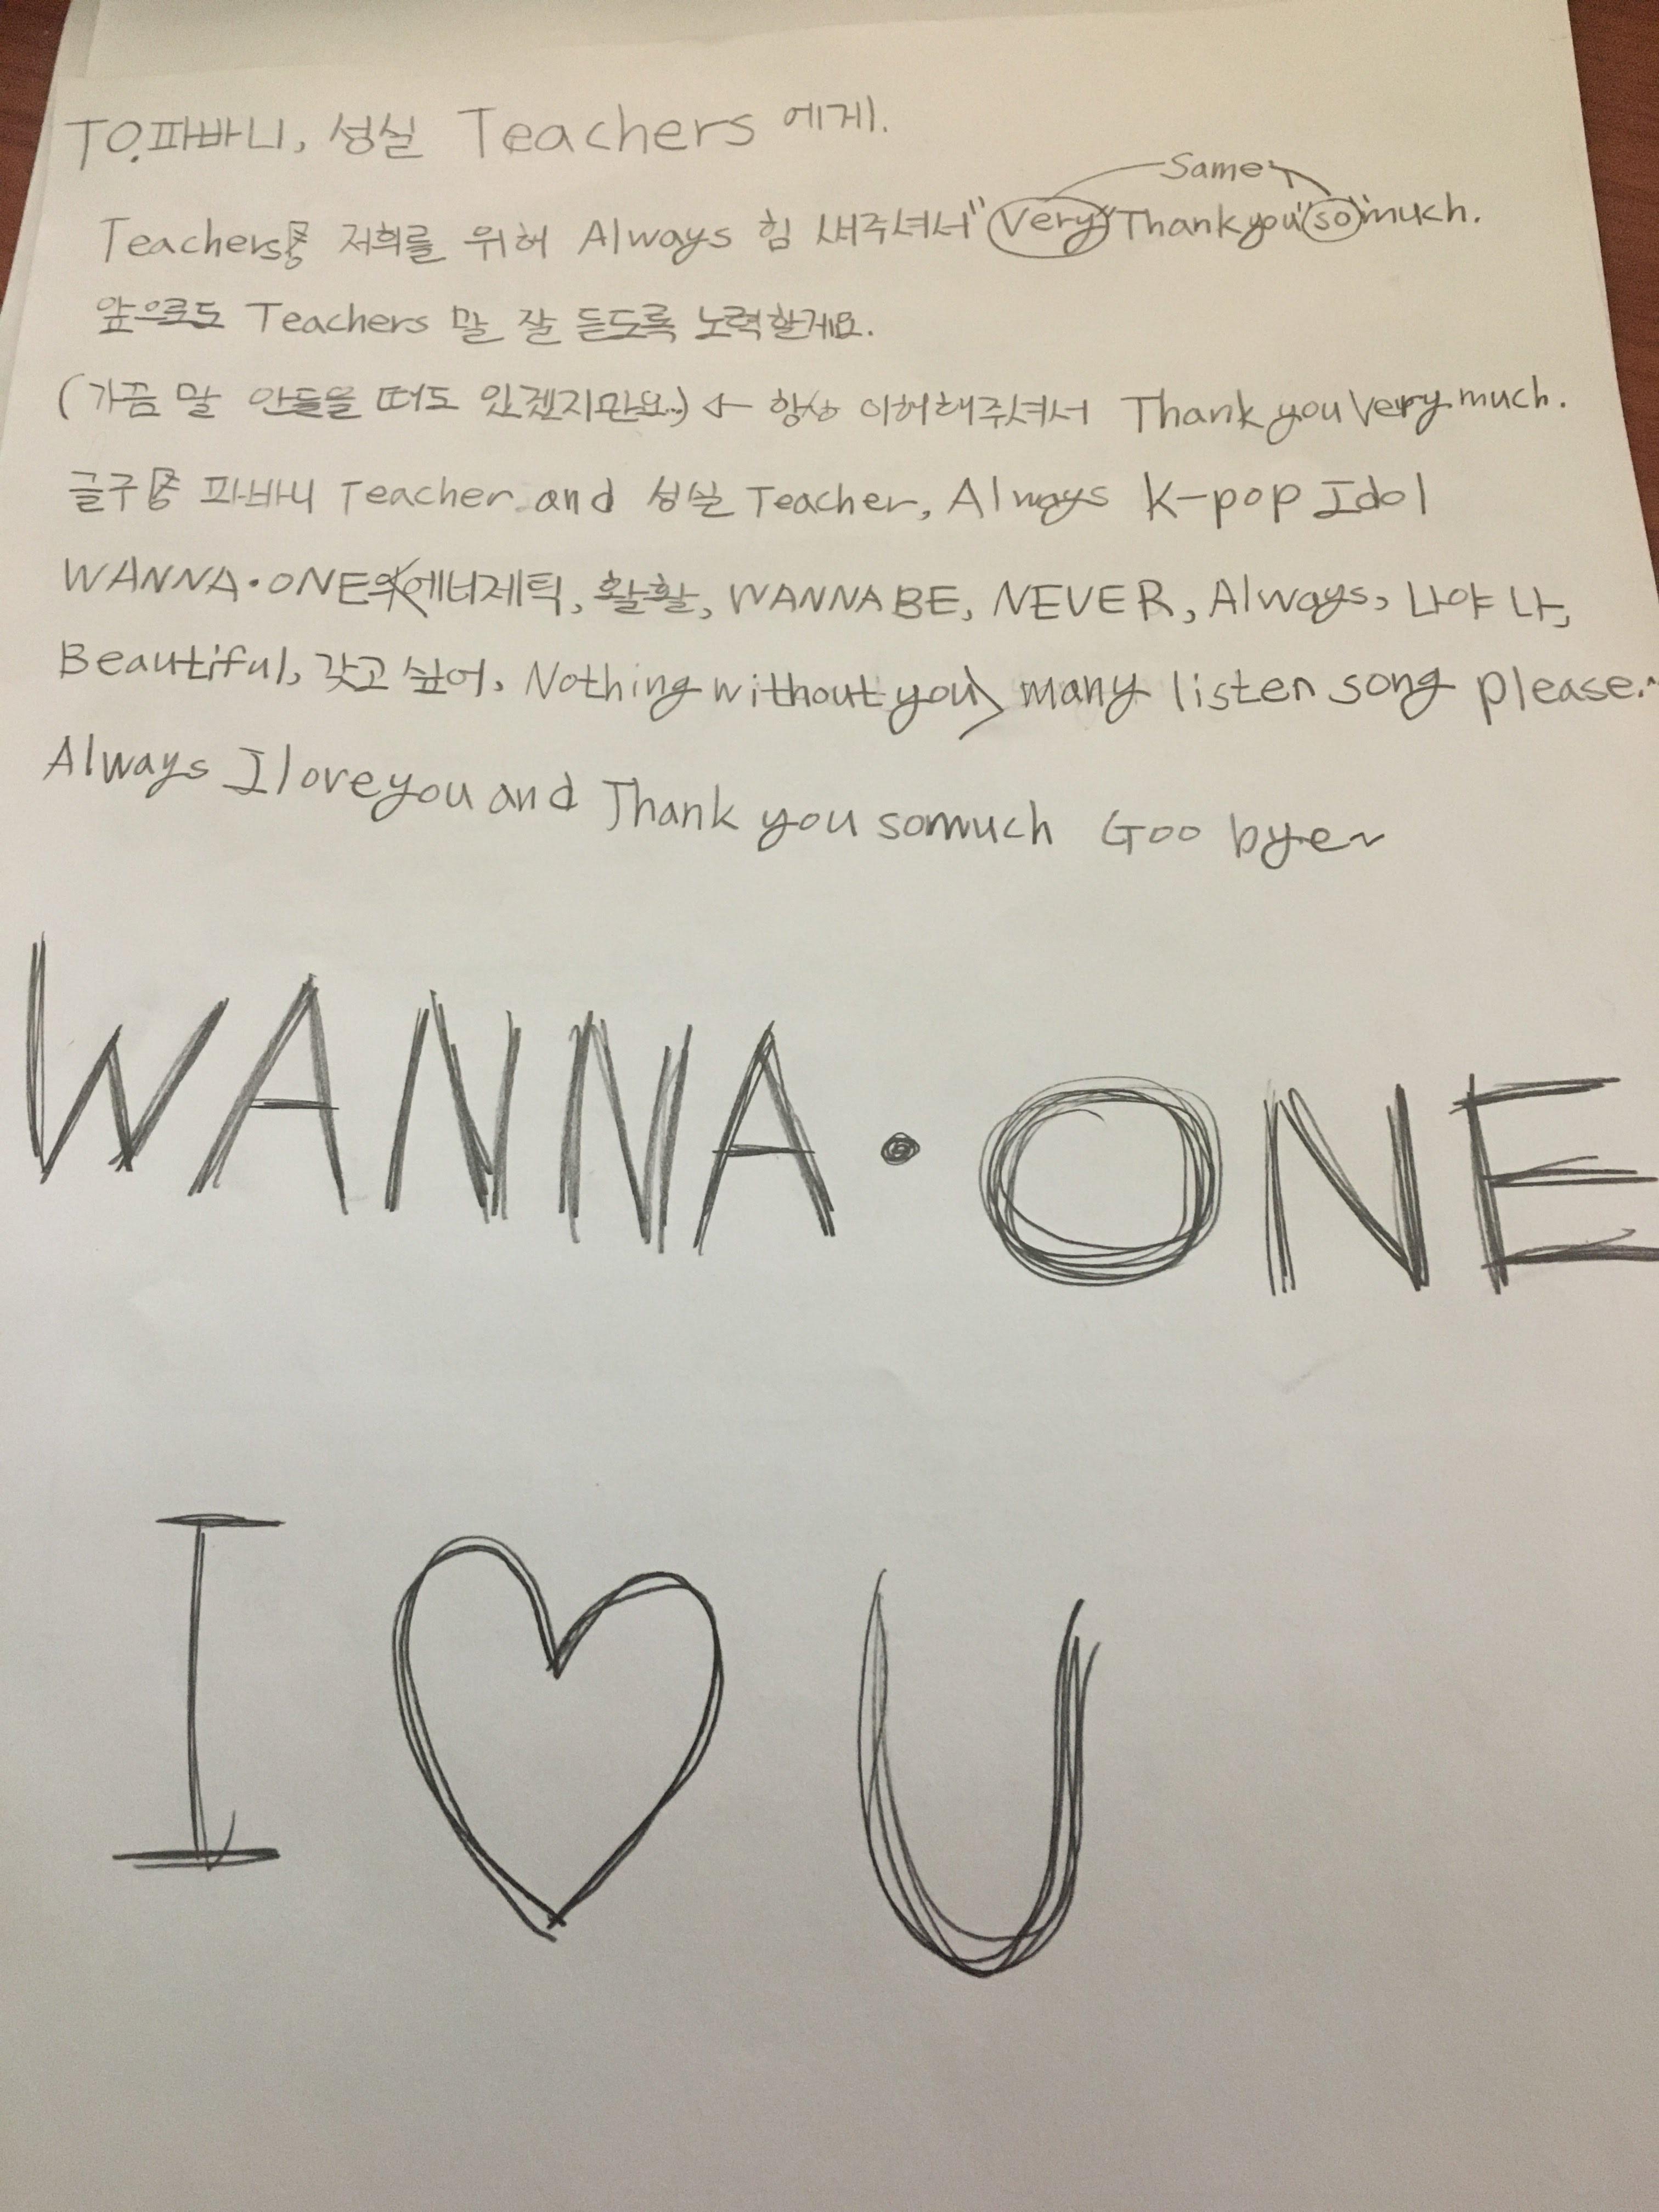 TO.파바니, 성실 Teachers 에게.
Same
Teachers 저희를 위해 Always 힘 써주셔서 "Very" Thank you "so" much.
앞으로도 Teachers 말 잘 듣도록 노력할게요.
(가끔 말 안들을 때도 있겠지만요..) ← 항상 이해해주셔서 Thank you Very much.
글구 파바니 Teacher and 성실 Teacher, Always K-pop Idol
WANNA·ONE 에너제틱, 활활, WANNABE, NEVER, Always, 나야 나,
Beautiful, 갖고 싶어, Nothing without you> many listen song please.~
Always I love you and Thank you somuch Goo bye~
WANNA·ONE
I ♡ U